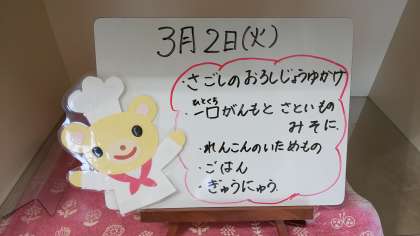 3月2日(火)
・さごしのおろしじょうゆかけ
・一口がんもと さといもの
みそに.
・れんこんのいためもの
・ごはん
・ぎゅうにゅう.